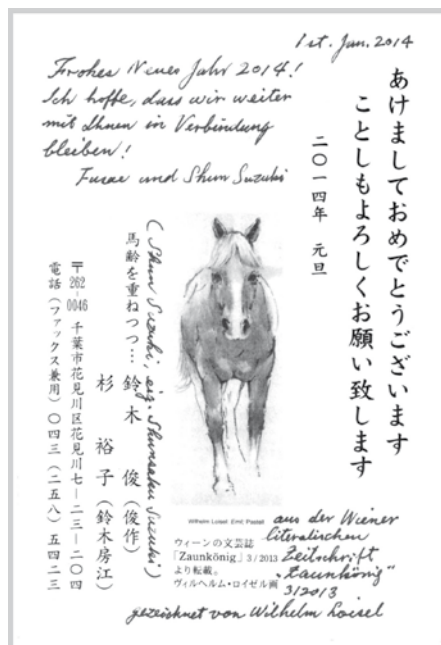 1st. Jan. 2014
Frohes Neues Jahr 2014!
Ich hoffe, dass wir weiter
mit Ihnen in Verbindung
bleiben!
Fusae und Shun Suzuki
あけましておめでとうございます
ことしもよろしくお願い致します
二〇一四年 元旦
(Shun Suzuki, eig. Shunsaku Suzuki)
馬齢を重ねつつ… 鈴木 俊(俊作)
杉 裕子(鈴木房江)
〒262-0046 千葉市花見川区花見川七―二三―二〇四
電話(ファックス兼用)〇四三(二五八)五四二三
Wilhelm Loisel
ウィーンの文芸誌
「Zaunkönig」3/2013
より転載。
ヴィルヘルム・ロイゼル画
aus der Wiener
literalischen
Zeitschrift
„Zaunkönig"
3/2013
gezeichnet von Wilhelm Loisel